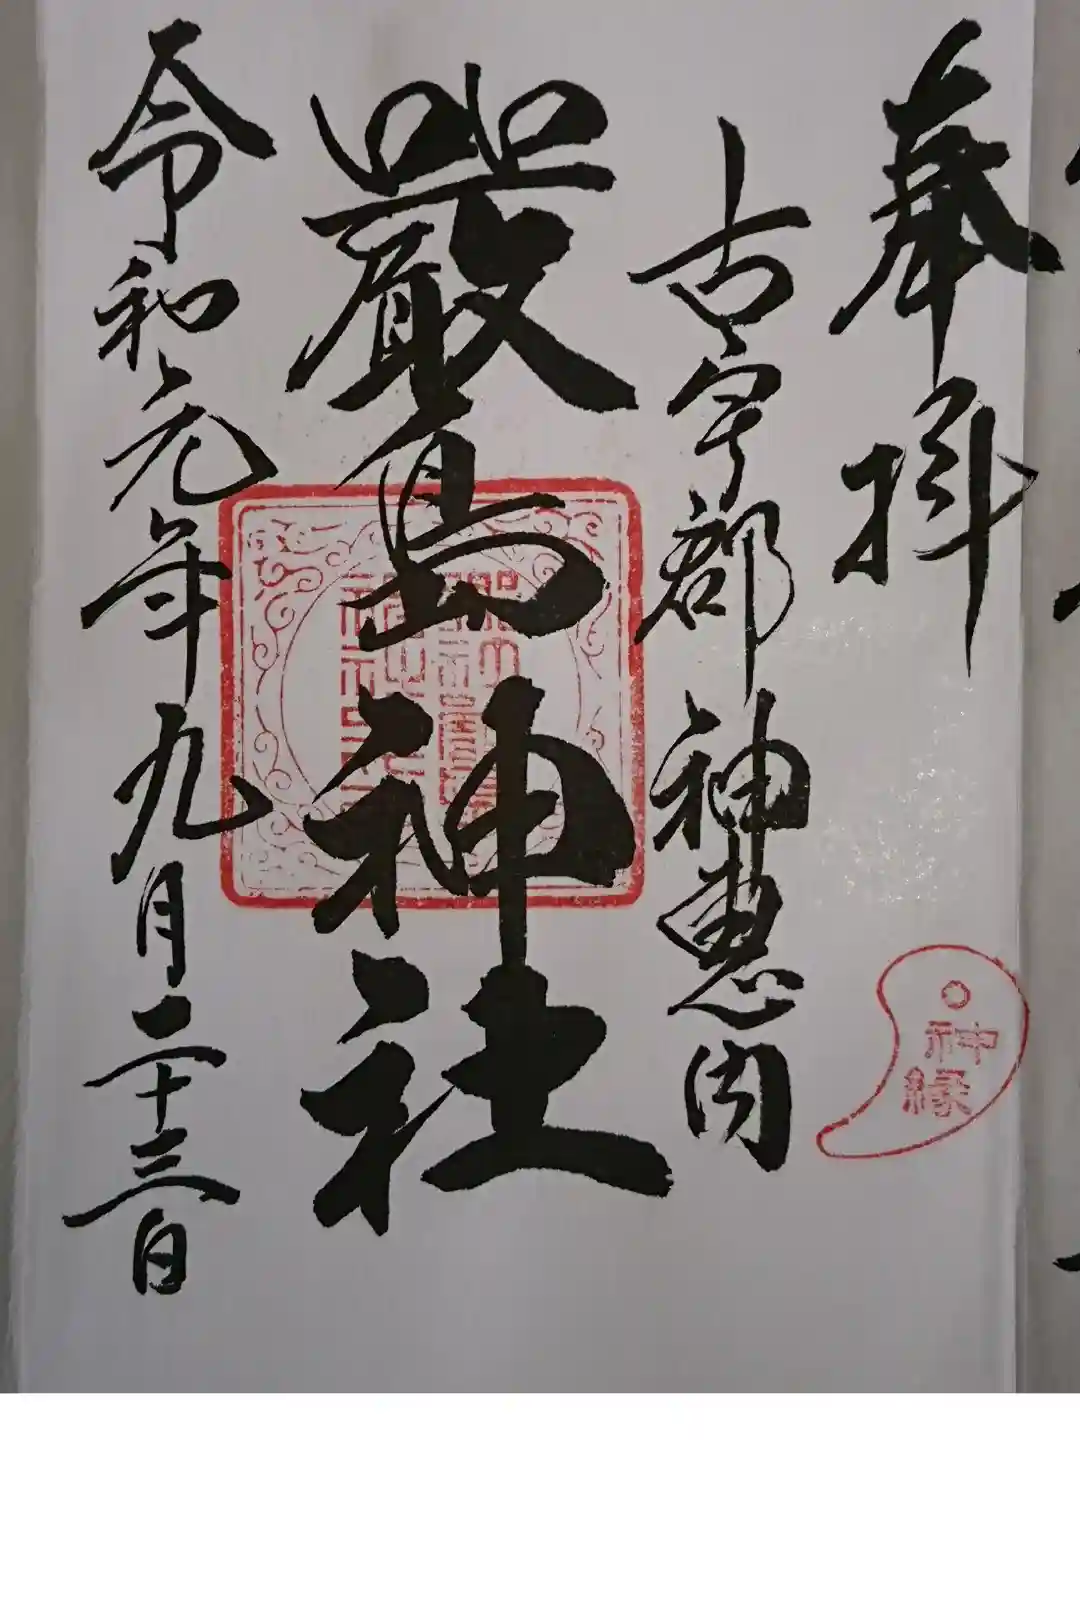 奉拝
古宇郡神恵内
嚴島神社
令和元年九月二十三日
神縁